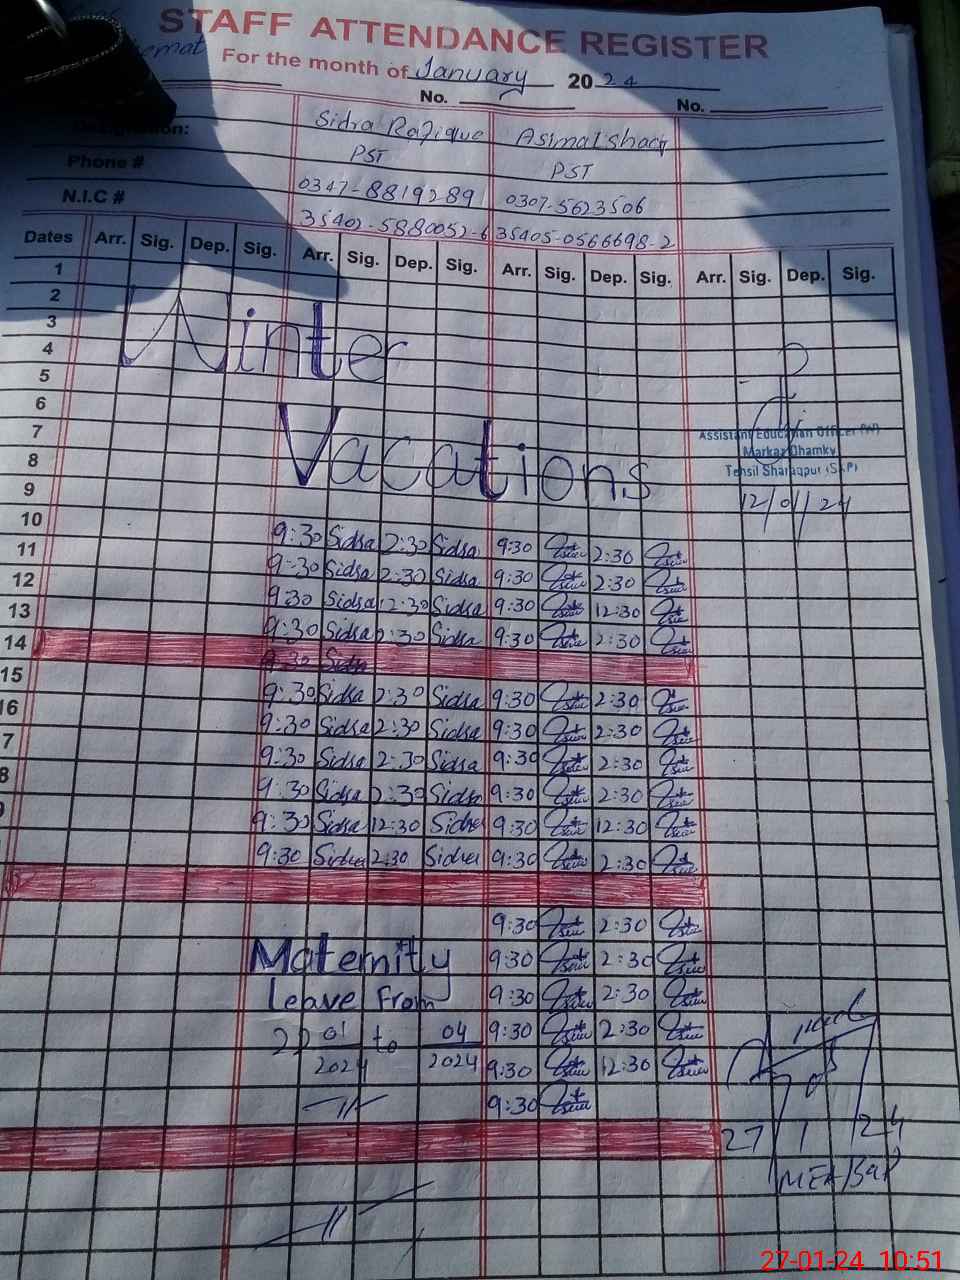 STAFF ATTENDANCE REGISTER
For the month of January 2024
No. No.
Sidra Rafique
Designation: PST PST
Phone # 0347-8819289 0307-5623506
N.I.C # 35402-5880052-6 35405-0566698-2
Dates Arr. Sig. Dep. Sig. Arr. Sig. Dep. Sig. Arr. Sig. Dep. Sig. Arr. Sig. Dep. Sig.
1
2
3
Winter
4
5
6
7
Vacations
8
9
Assistant Education Officer (W)
Markaz Dhamky
Tehsil Sharaqpur (SKP)
12/01/24
10
9:30 Sidra 2:30 Sidra 9:30 2:30
11
9:30 Sidra 2:30 Sidra 9:30 2:30
12
9:30 Sidra 12:30 Sidra 9:30 12:30
13
9:30 Sidra 2:30 Sidra 9:30 2:30
14
9:30 Sidra
15
9:30 Sidra 2:30 Sidra 9:30 2:30
16
9:30 Sidra 2:30 Sidra 9:30 2:30
7
9:30 Sidra 2:30 Sidra 9:30 2:30
8
9:30 Sidra 2:30 Sidra 9:30 2:30
9:30 Sidra 12:30 Sidra 9:30 12:30
9:30 Sidra 2:30 Sidra 9:30 2:30
9:30 2:30
Maternity 9:30 2:30
Leave From 9:30 2:30
22 01 2024 to 04 2024 9:30 2:30
9:30 12:30
9:30
27 1 24
MEA/SKP
27-01-24 10:51